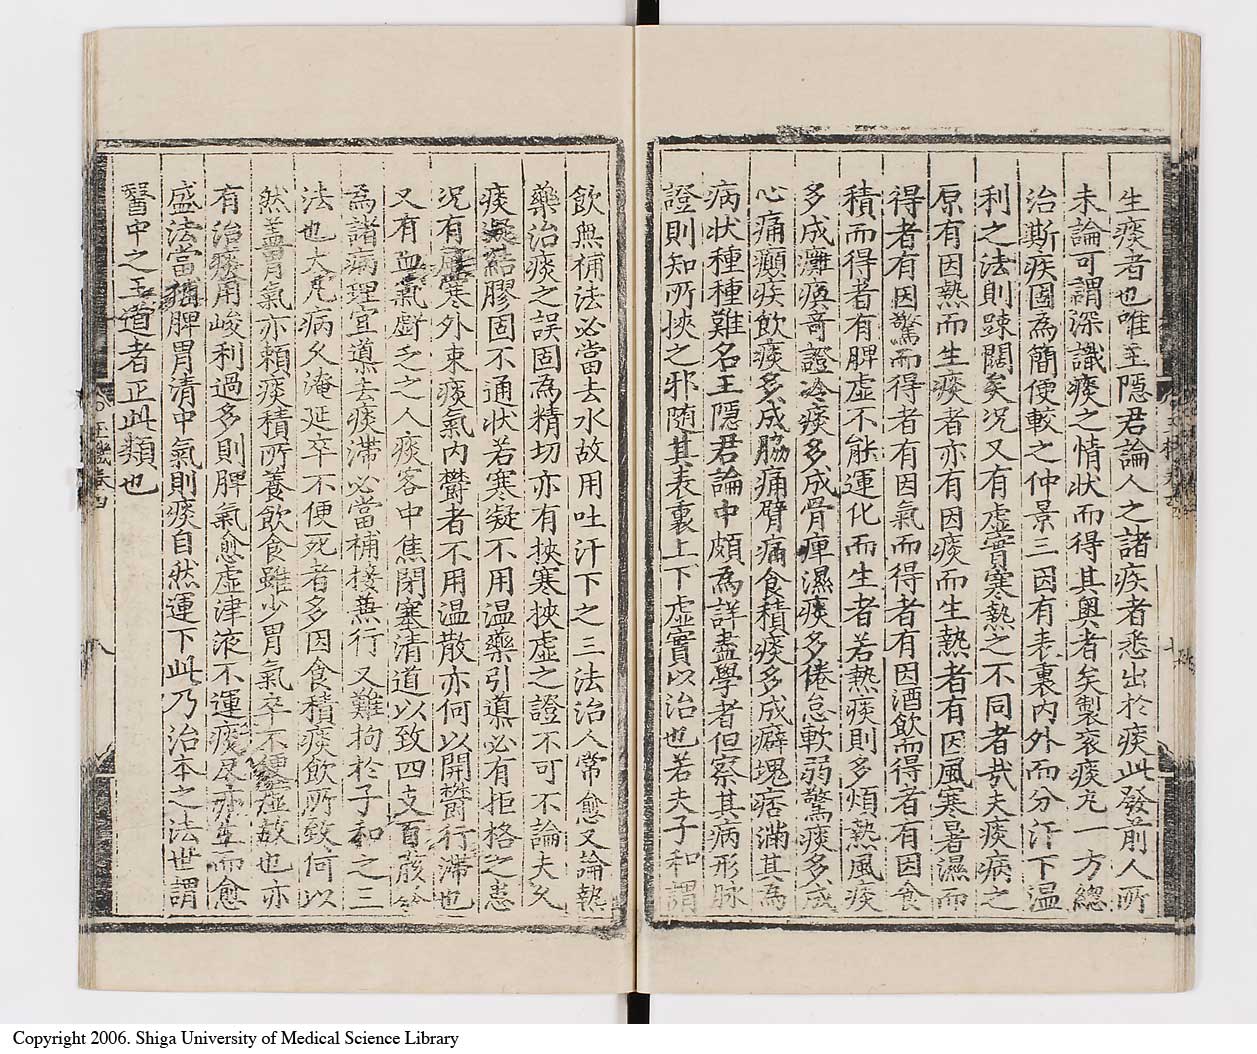 生痰者也唯王隱君論人之諸疾者悉出於痰此發前人所
未論可謂深識痰之情狀而得其奧者矣製衮痰丸一方總
治斯疾固為簡便較之仲景三因有表裏内外而分汗下温
利之法則踈闊矣况又有虚實寒熱之不同者㢤夫痰病之
原有因熱而生痰者亦有因痰而生熱者有因風寒暑濕而
得者有因驚而得者有因氣而得者有因酒飲而得者有因食
積而得者有脾虚不能運化而生者若熱痰則多煩熱風痰
多成灘瘓竒證冷痰多成骨痺濕痰多倦怠軟弱驚痰多成
心痛癲疾飲痰多成脇痛臂痛食積痰多成癖塊痞滿其為
病狀種種難名王隱君論中頗為詳盡學者但察其病形脉
證則知所挾之邪随其表裏上下虚實以治也若夫子和謂
飲無補法必當去水故用吐汗下之三法治人常愈又論熱
藥治痰之誤固為精切亦有挾寒挾虚之證不可不論夫久
痰凝結膠固不通狀若寒凝不用温藥引導必有拒格之患
况有風寒外束痰氣内欝者不用温散亦何以開欝行滯也
又有血氣虧乏之人痰客中焦閉塞清道以致四支百骸
為諸病理宜導去痰滯必當補接兼行又難拘於子和之三
法也大凡病久淹延卒不便死者多因食積痰飲所致何以
然盖胃氣亦賴痰積所養飲食雖少胃氣卒不便虚故也亦
有治痰用峻利過多則脾氣愈虚津液不運痰反而愈
盛法當補脾胃清中氣則痰自然運下此乃治本之法世謂
醫中之王道者正此類也
八
Copyright 2006. Shiga University of Medical Science Library